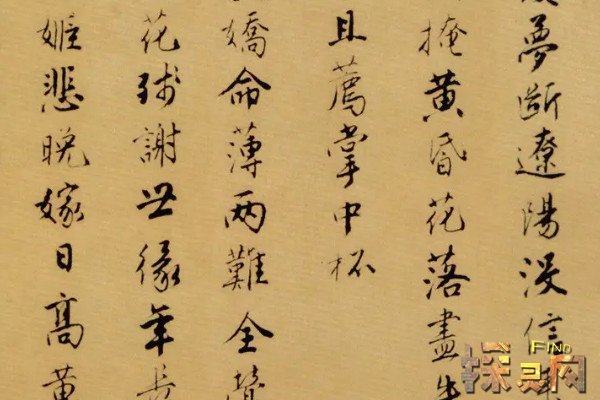 夢斷遼陽沒信
掩黄昏花落盡
且薦掌中杯
嬌命薄兩難全
花殘謝世緣年
姬悲晚嫁日高黄
FIND